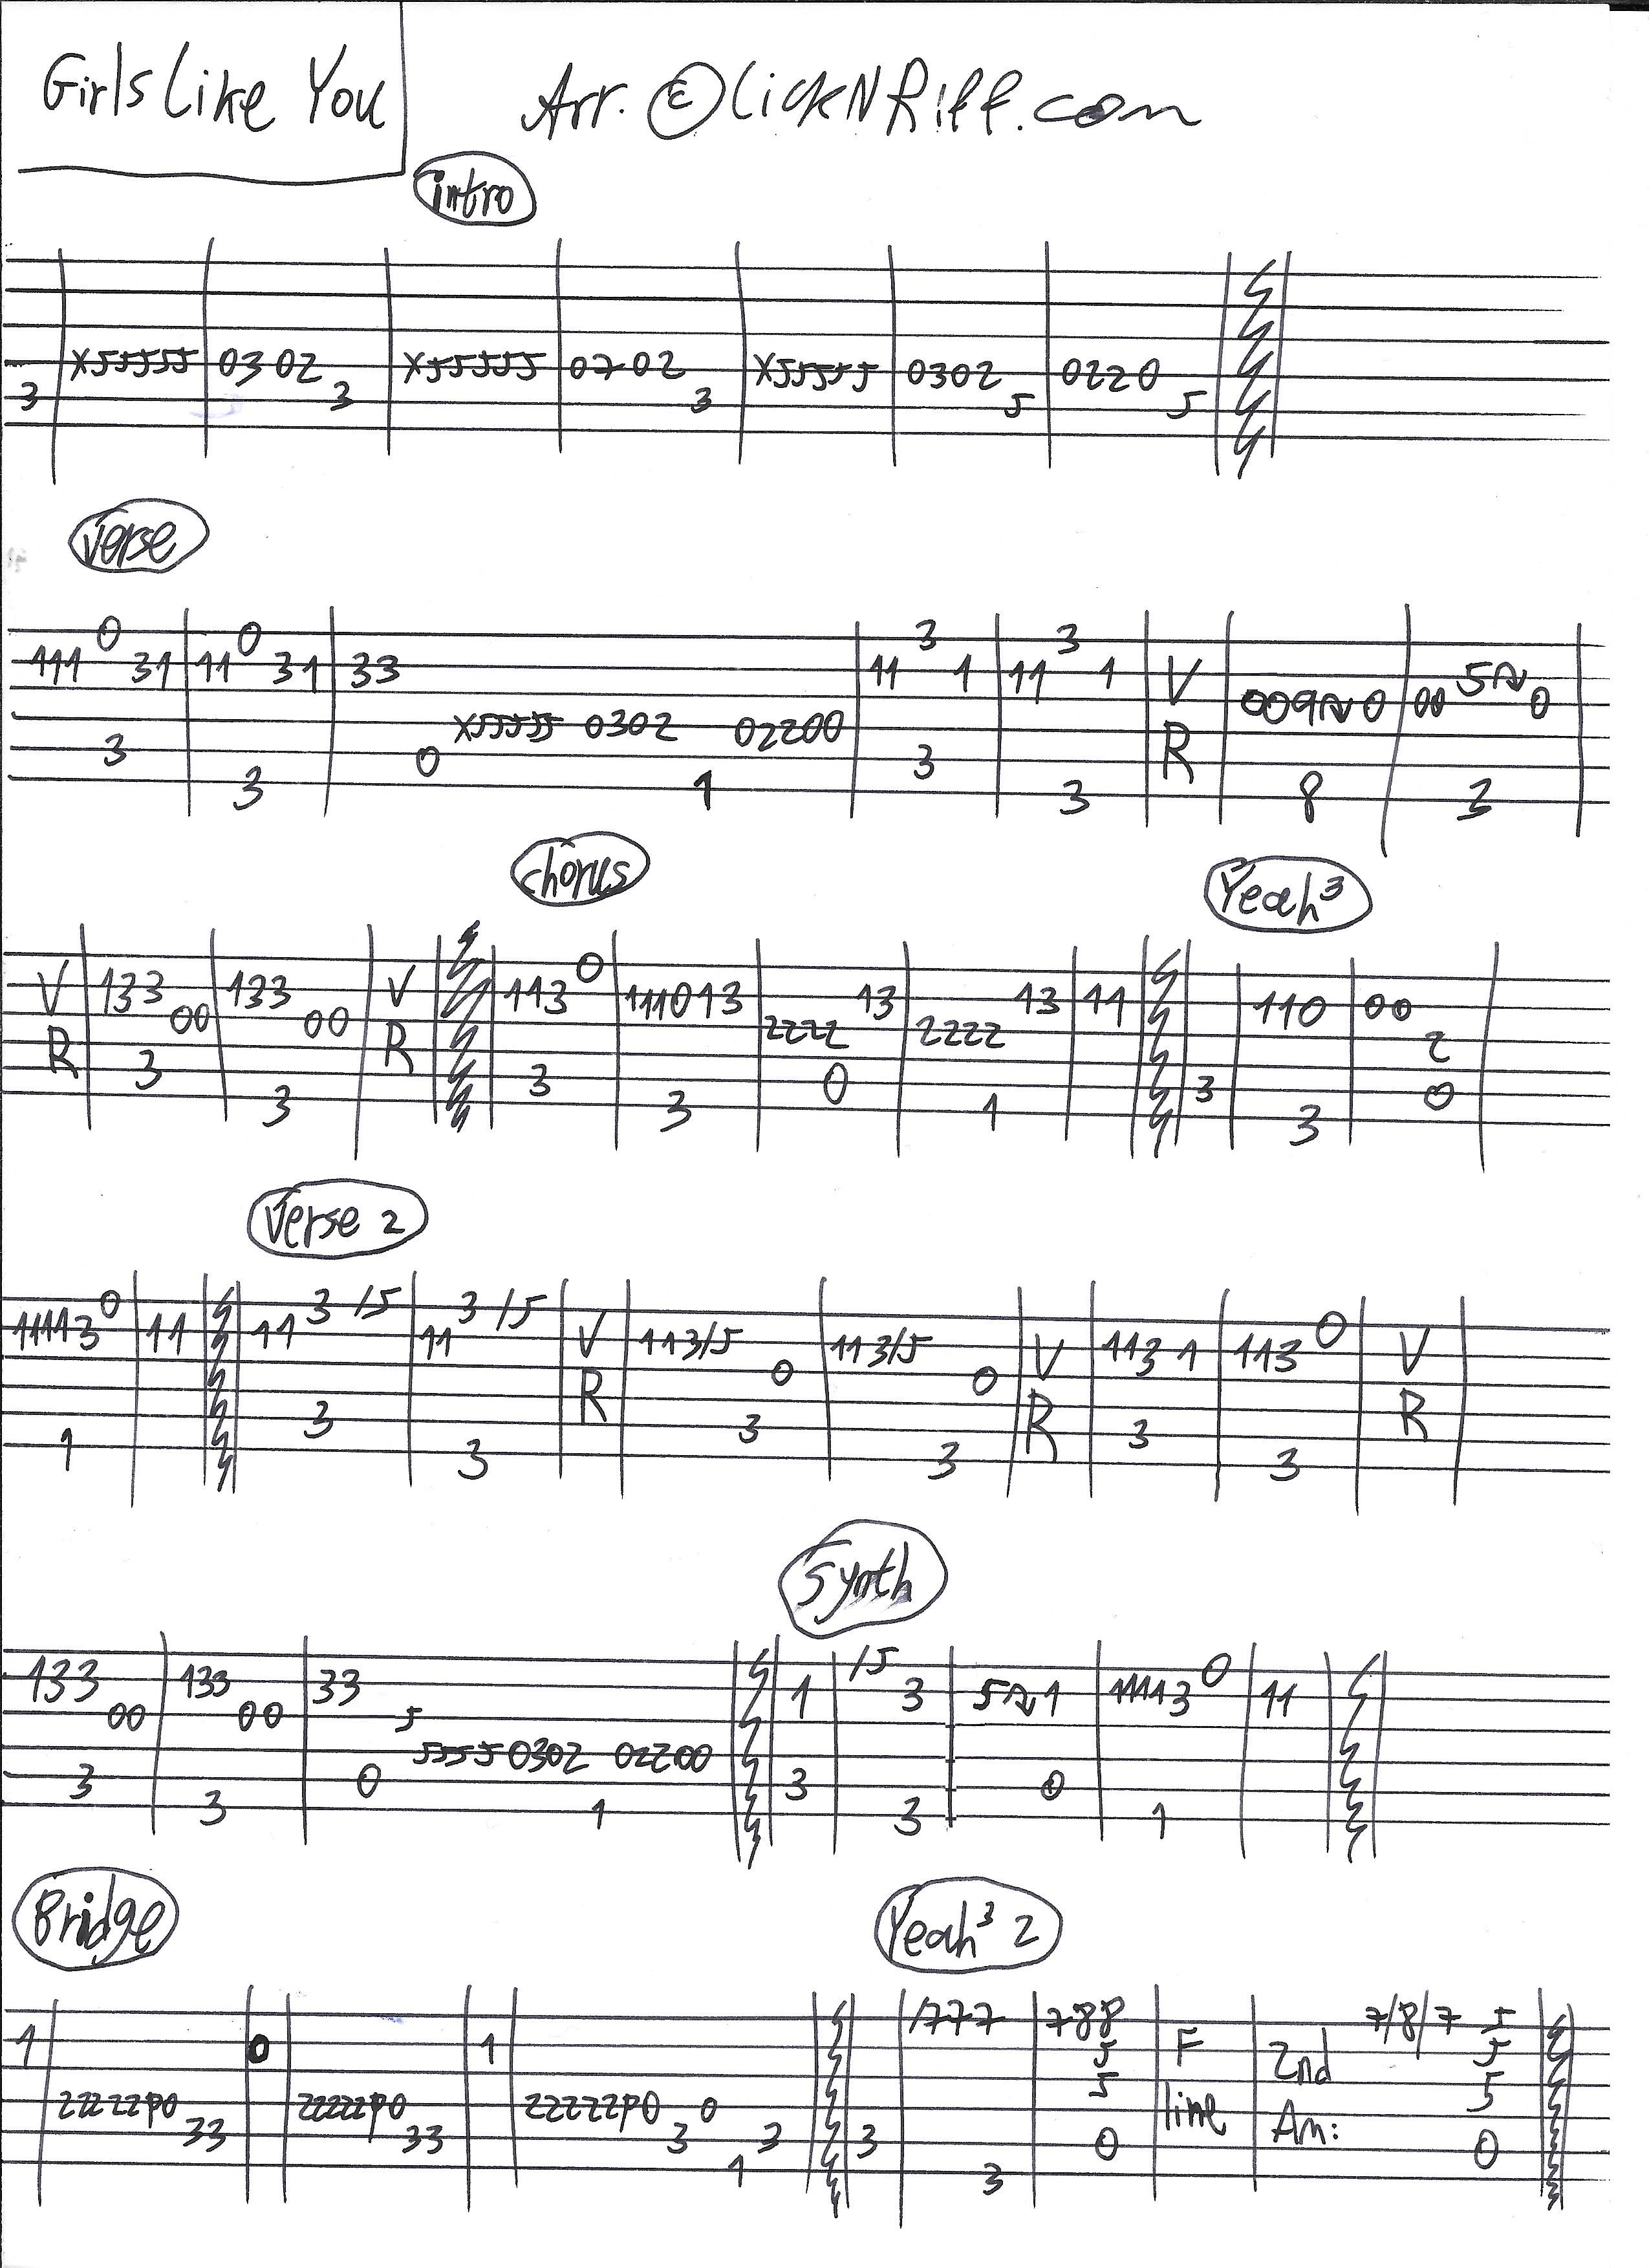 Girls Like You Arr. © LickNRiff.com
intro
x55555 0302 x55555 0702 x55555 0302 0220
3 3 3 5 5
Verse
0 0 3 3
111 31 11 31 33 11 1 11 1 V 5~
009~0 00 0
x55555 0302 02200
3 0 3 R
3 1 3 8 3
Chorus Yeah³
0
V 133 133 V 113 111013 13 13 11 110 00
00 00 2222 2222
R R 2
3 3 0 3 0
3 3 1 3
Verse 2
0 3 /5 3 /5 0
11113 11 11 11 V 113/5 113/5 V 113 1 113 V
0 0
R R R
3 3 3
1 3 3 3
Synth
/5 0
133 133 33 1 3 5~1 11113 11
00 00 5
5555 0302 02200
3 0 3 0
3 1 3 1
Bridge Yeah³ 2
/777 788 7/8/7 5
1 0 1 5 F 2nd 5
5 5
22222p0 22222p0 22222p0 0 line
33 33 3 3 3 0 Am: 0
1 3